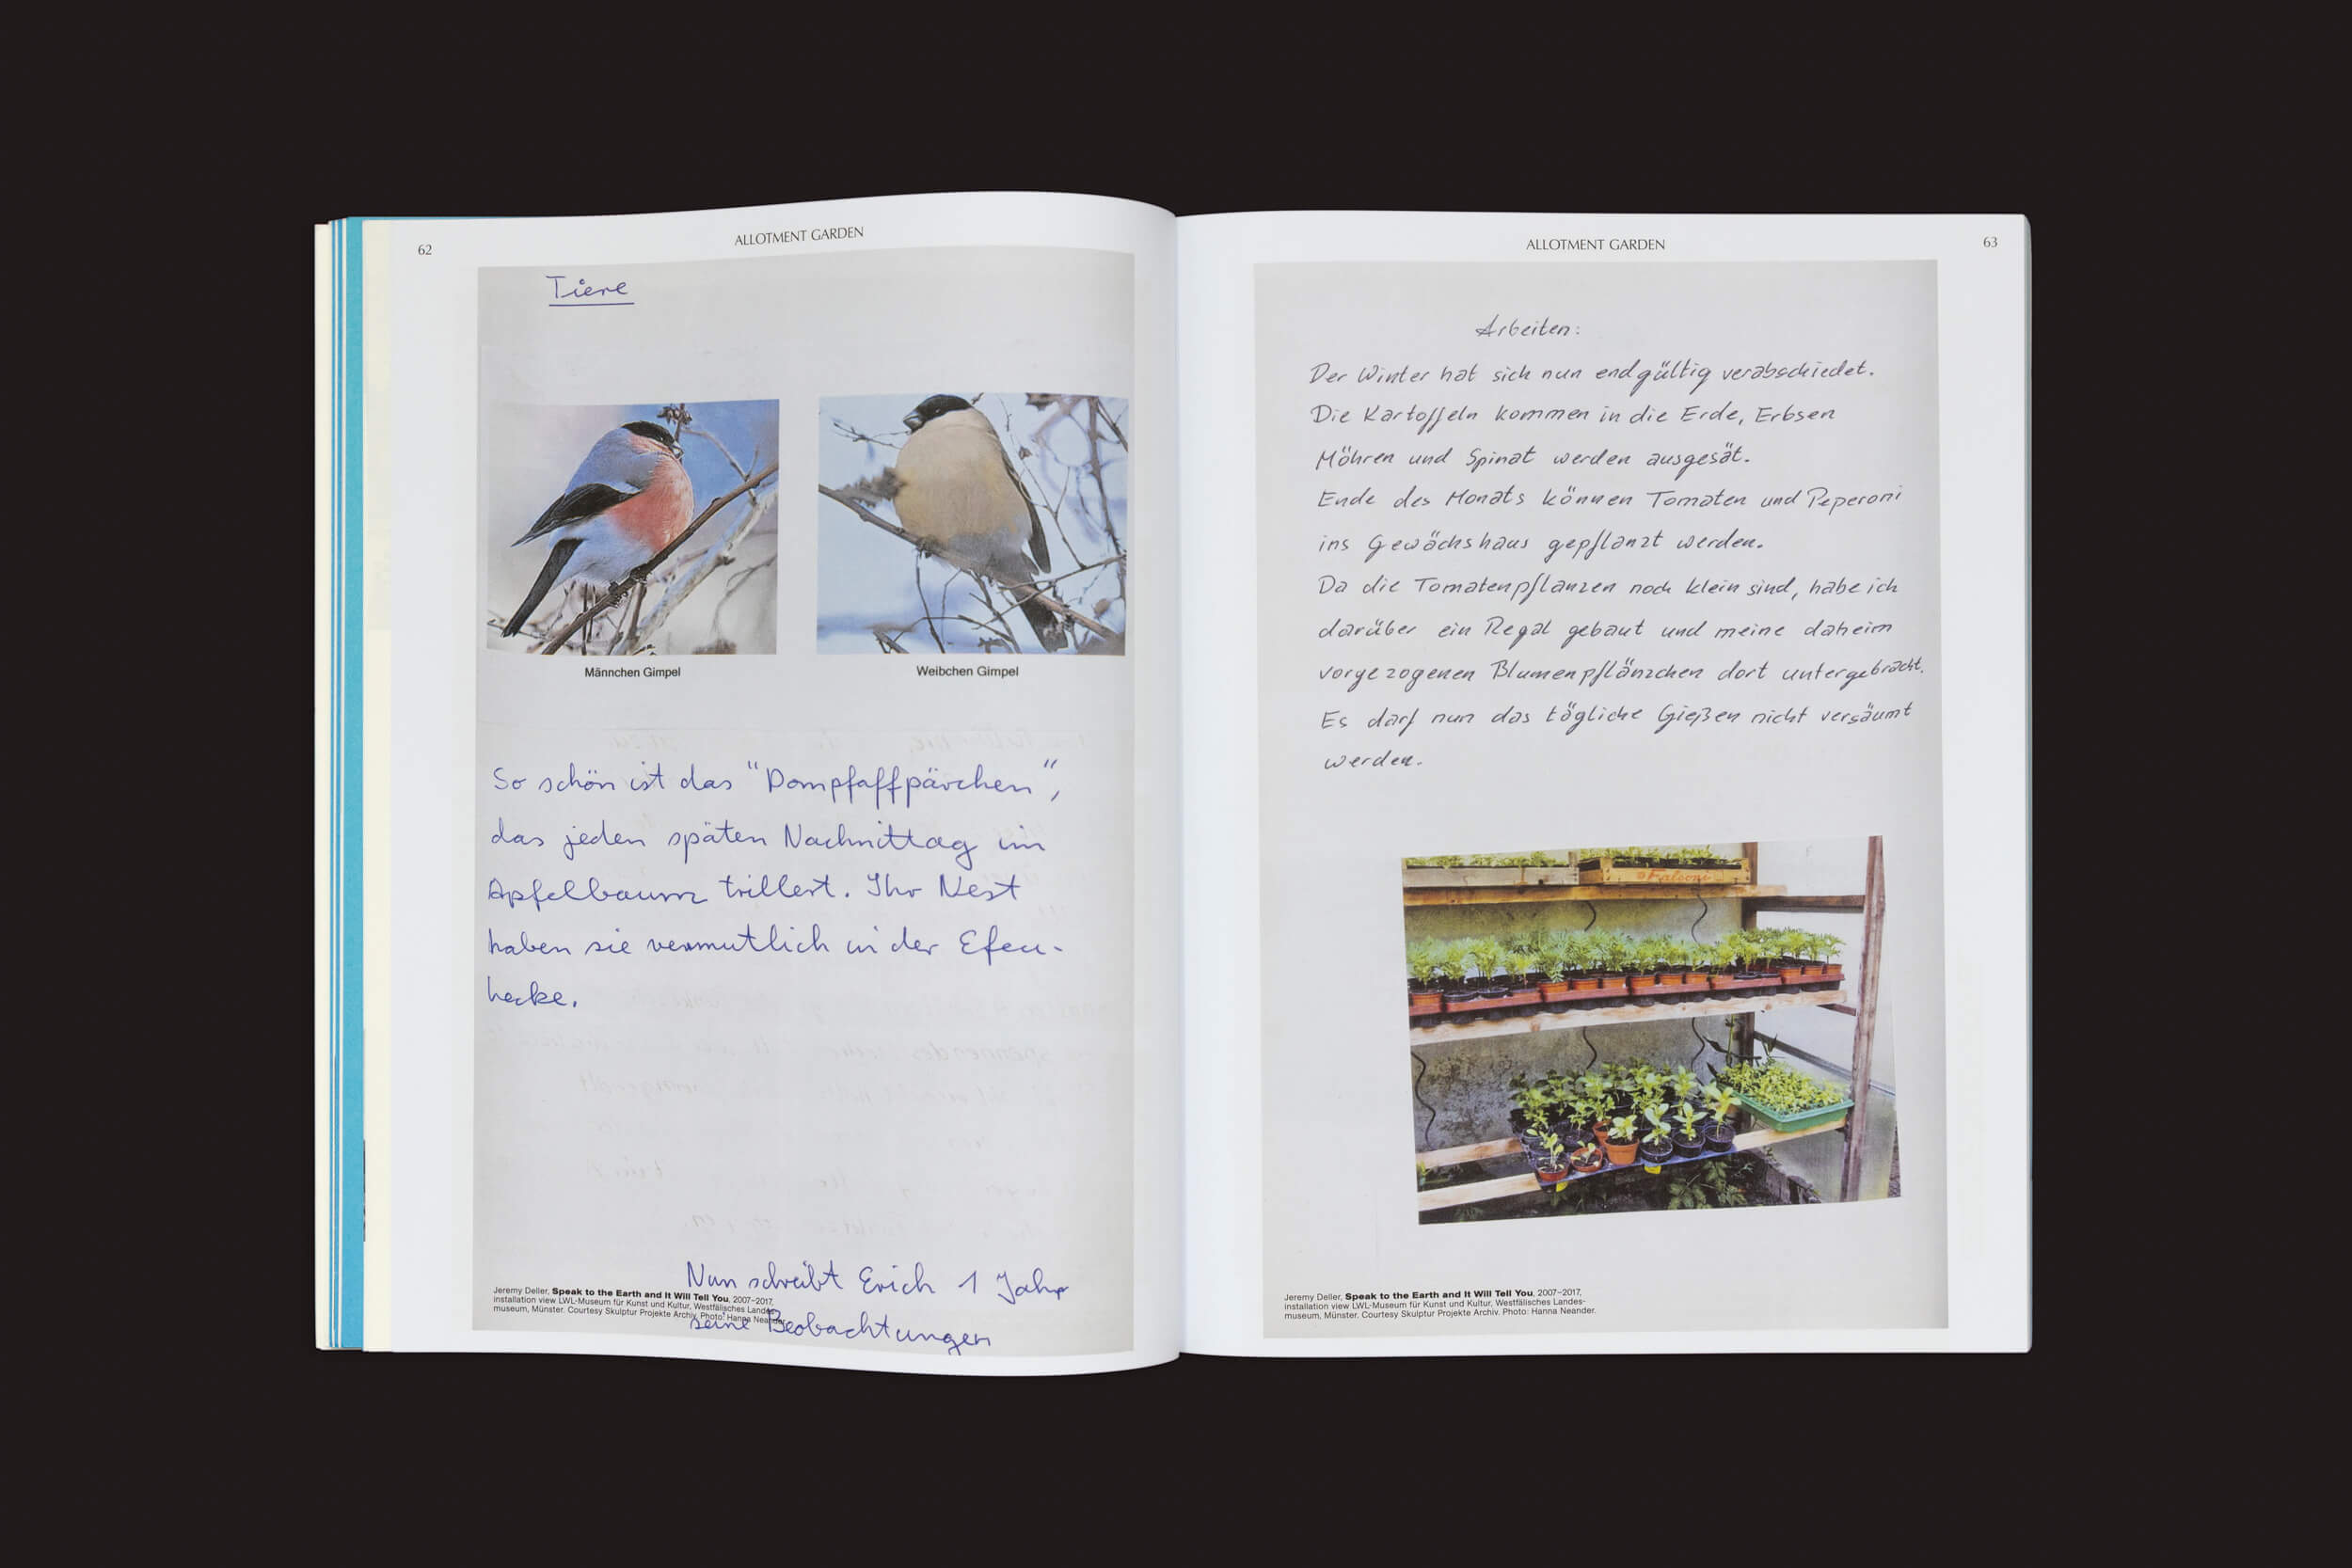 62
ALLOTMENT GARDEN
Tiere
Männchen Gimpel
Weibchen Gimpel
So schön ist das "Dompfaffpärchen",
das jeden späten Nachmittag im
Apfelbaum trillert. Ihr Nest
haben sie vermutlich in der Efeu-
hecke.
Nun schreibt Erich 1 Jahr
seine Beobachtungen
Jeremy Deller, Speak to the Earth and It Will Tell You, 2007–2017,
installation view LWL-Museum für Kunst und Kultur, Westfälisches Landes-
museum, Münster. Courtesy Skulptur Projekte Archiv. Photo: Hanna Neander.
ALLOTMENT GARDEN
63
Arbeiten:
Der Winter hat sich nun endgültig verabschiedet.
Die Kartoffeln kommen in die Erde, Erbsen
Möhren und Spinat werden ausgesät.
Ende des Monats können Tomaten und Peperoni
ins Gewächshaus gepflanzt werden.
Da die Tomatenpflanzen noch klein sind, habe ich
darüber ein Regal gebaut und meine daheim
vorgezogenen Blumenpflänzchen dort untergebracht.
Es darf nun das tägliche Gießen nicht versäumt
werden.
Falconi
Jeremy Deller, Speak to the Earth and It Will Tell You, 2007–2017,
installation view LWL-Museum für Kunst und Kultur, Westfälisches Landes-
museum, Münster. Courtesy Skulptur Projekte Archiv. Photo: Hanna Neander.